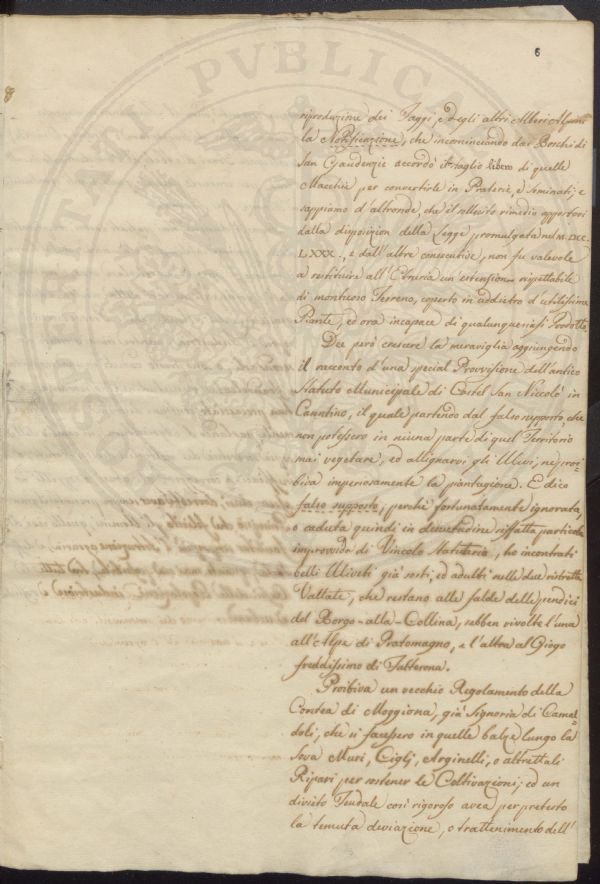 6
riproduzione dei Faggi, e degli altri Alberi Alpini
la Notificazione, che incominciando dai Boschi di
San Gaudenzio accordò il taglio libero di quelle
Macchie per convertirle in Praterie, e Seminati; e
sappiamo d'altronde, che il sollecito rimedio apportovi
dalla disposizion della Legge promulgata nel M.DCC.
LXXX., e dall'altre consecutive, non fu valevole
a restituire all'Etruria un'estensione rispettabile
di montuoso Terreno, coperto in addietro d'utilissime
Piante, ed ora incapace di qualunquesiasi Prodotto.
Dee però crescere la meraviglia aggiungendo
il racconto d'una special Provvisione dell'antico
Statuto Municipale di Castel San Niccolò in
Casentino, il quale partendo dal falso supposto, che
non potessero in niuna parte di quel Territorio
mai vegetare, ed allignarvi gli Ulivi, ne proi-
biva imperiosamente la piantagione. E dico
falso supposto, perchè fortunatamente ignorata,
o caduta quindi in desuetudine siffatta particola
improvvida di Vincolo Statutario, ho incontrati
belli Uliveti già posti, ed adulti nelle due ristrette
Vallate, che restano alle falde delle pendici
del Borgo-alla-Collina, sebben rivolte l'una
all'Alpe di Pratomagno, e l'altra al Giogo
freddissimo di Falterona.
Proibiva un vecchio Regolamento della
Contea di Moggiona, già Signoria di Camal-
doli, che si facessero in quelle balze lungo la
Sova Muri, Ciglj, Arginelli, o altrettali
Ripari per sostener le Coltivazioni; ed un
divieto Feudale così rigoroso avea per pretesto
la temuta deviazione, o trattenimento dell'